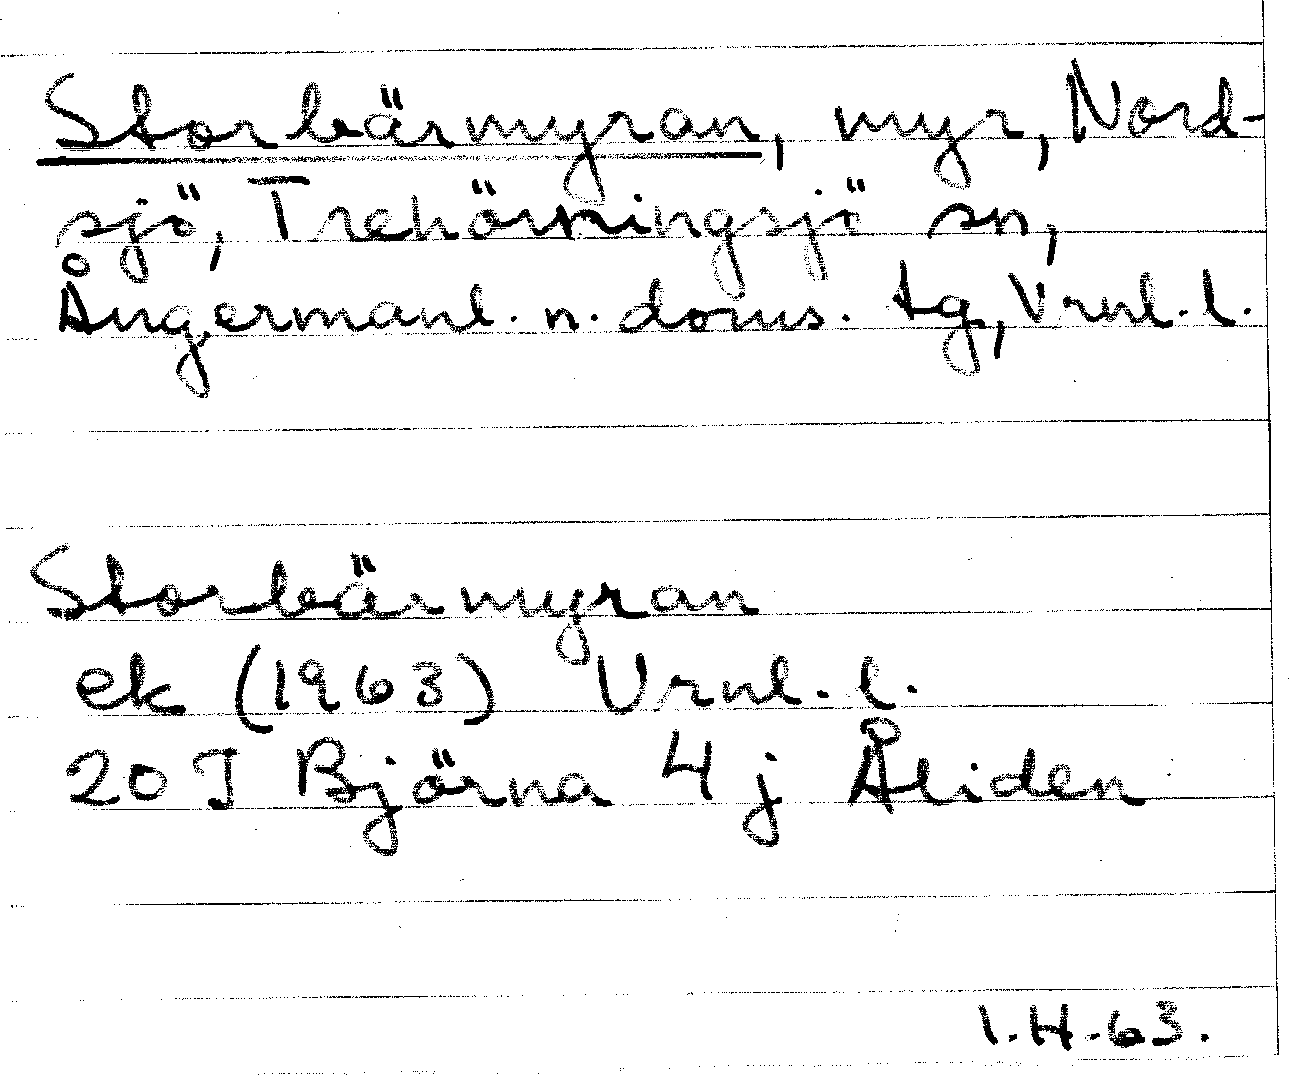 Storbärmyran, myr, Nord-
sjö, Trehörningsjö sn,
Ångermanl. n. doms. tg, Vrnl. l.
Storbärmyran
ek (1963) Vrnl. l.
20 J Björna 4 j Åliden
I.H.63.